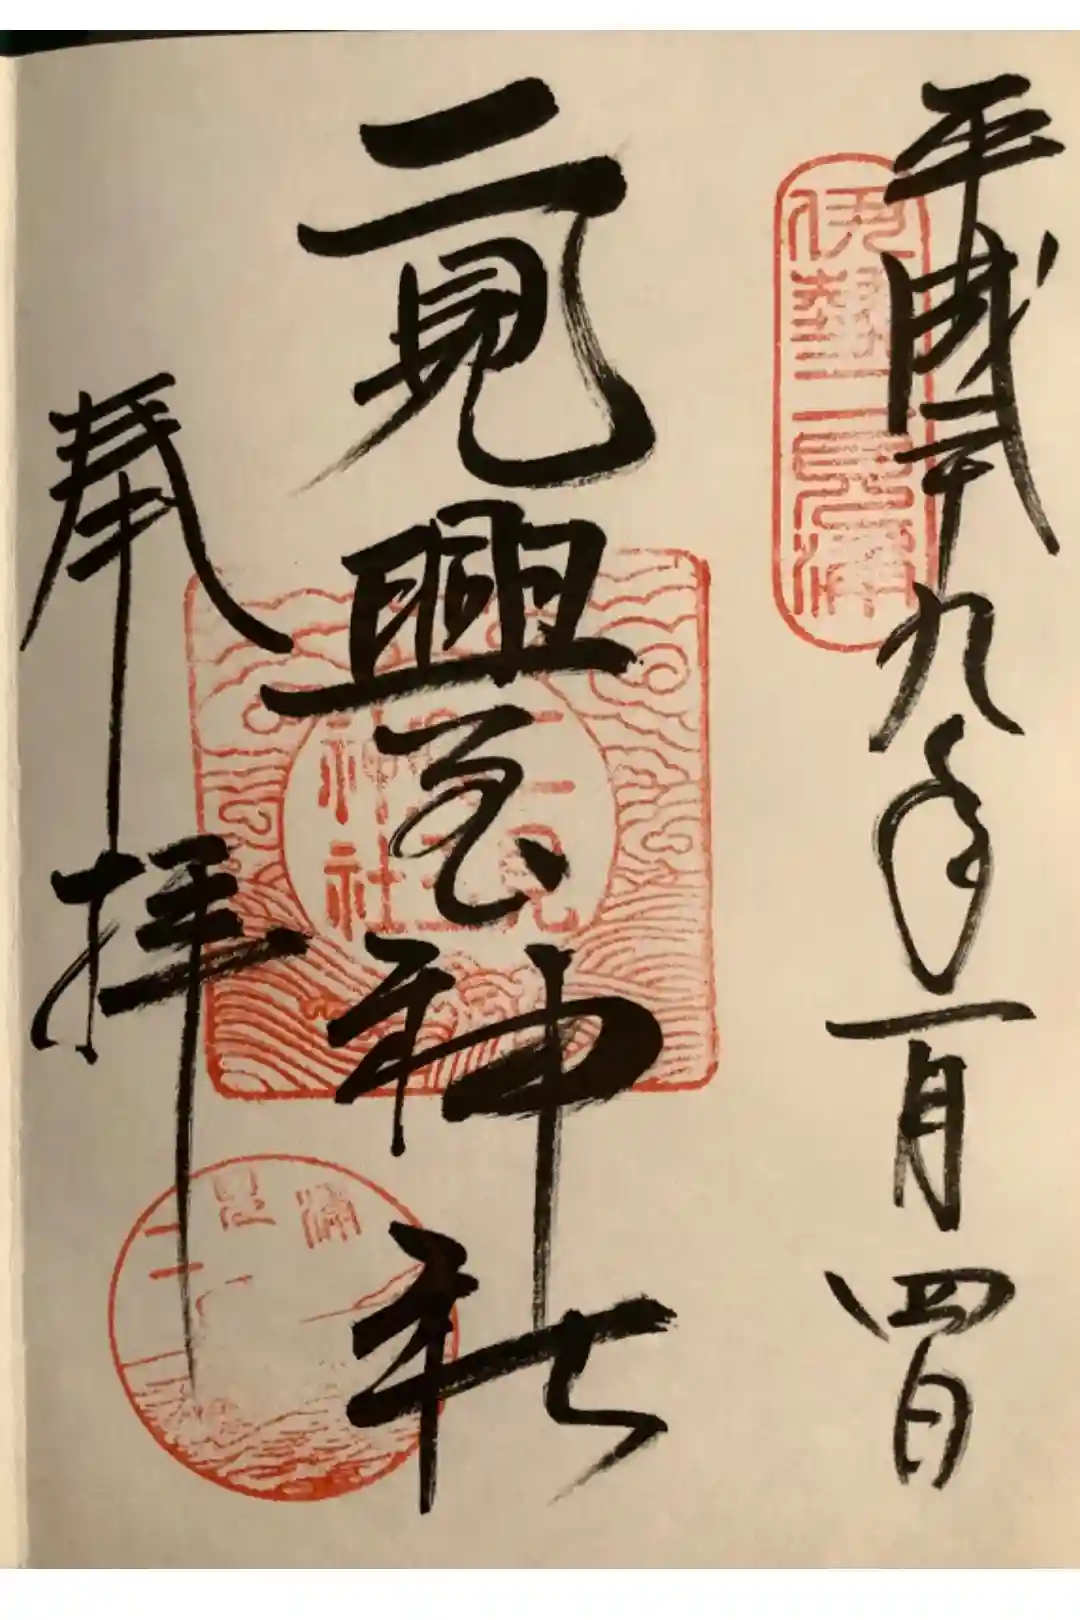 平成二十九年一月四日
伊勢二見浦
二見興玉神社
二見興玉神社
奉拝
二見浦